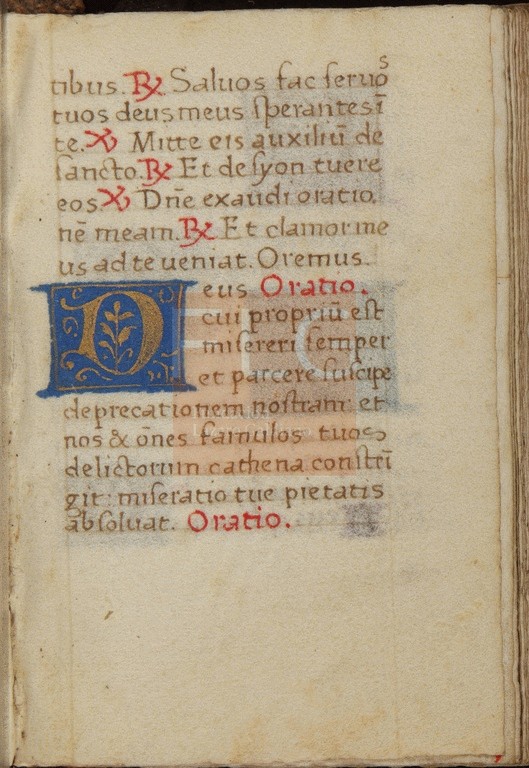 tibus. ℟ Saluos fac seruos
tuos deus meus sperantes ī
te. ℣ Mitte eis auxiliū de
sancto. ℟ Et de syon tuere
eos. ℣ Dn̄e exaudi oratio
nē meam. ℟ Et clamor me
us ad te ueniat. Oremus.
Deus Oratio.
cui propriū est
misereri semper
et parcere suscipe
deprecationem nostram: et
nos & om̄es famulos tuos
delictorum cathena constrī
git: miseratio tue pietatis
absoluat. Oratio.